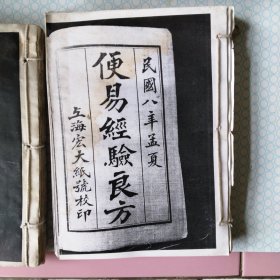 民國八年孟夏
便易經驗良方
上海宏大紙號校印